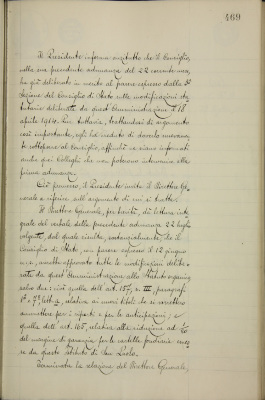 469
Il Presidente informa anzitutto che il Consiglio,
nella sua precedente adunanza del 22 corrente mese,
ha già deliberato in merito al parere espresso dalla 3ª
Sezione del Consiglio di Stato sulle modificazioni sta-
tutarie deliberate da quest'Amministrazione il 18
aprile 1914. Pur tuttavia, trattandosi di argomento
così importante, egli ha creduto di doverlo nuovamen-
te sottoporre al Consiglio, affinchè ne siano informati
anche quei Colleghi che non poterono intervenire alla
prima adunanza.
Ciò premesso, il Presidente invita il Direttore Ge-
nerale a riferire sull'argomento di cui si tratta.
Il Direttore Generale, per tanto, dà lettura inte-
grale del verbale della precedente adunanza 22 luglio
volgente, dal quale risulta, sostanzialmente, che il
Consiglio di Stato, con parere espresso il 12 giugno
u. s., avrebbe approvato tutte le modificazioni delibe-
rate da quest'Amministrazione allo Statuto organico
salvo due: cioè quella dell'art. 157, n. III, paragrafi
relativa ai nuovi titoli da se ammettere
per i riporti e per le anticipazioni; e
quella dell'art. 165, relativa alla riduzione ad 1/10
del margine di garanzia per le cartelle fondiarie emes-
se da questo Istituto di San Paolo.
Esaminata la relazione del Direttore Generale,